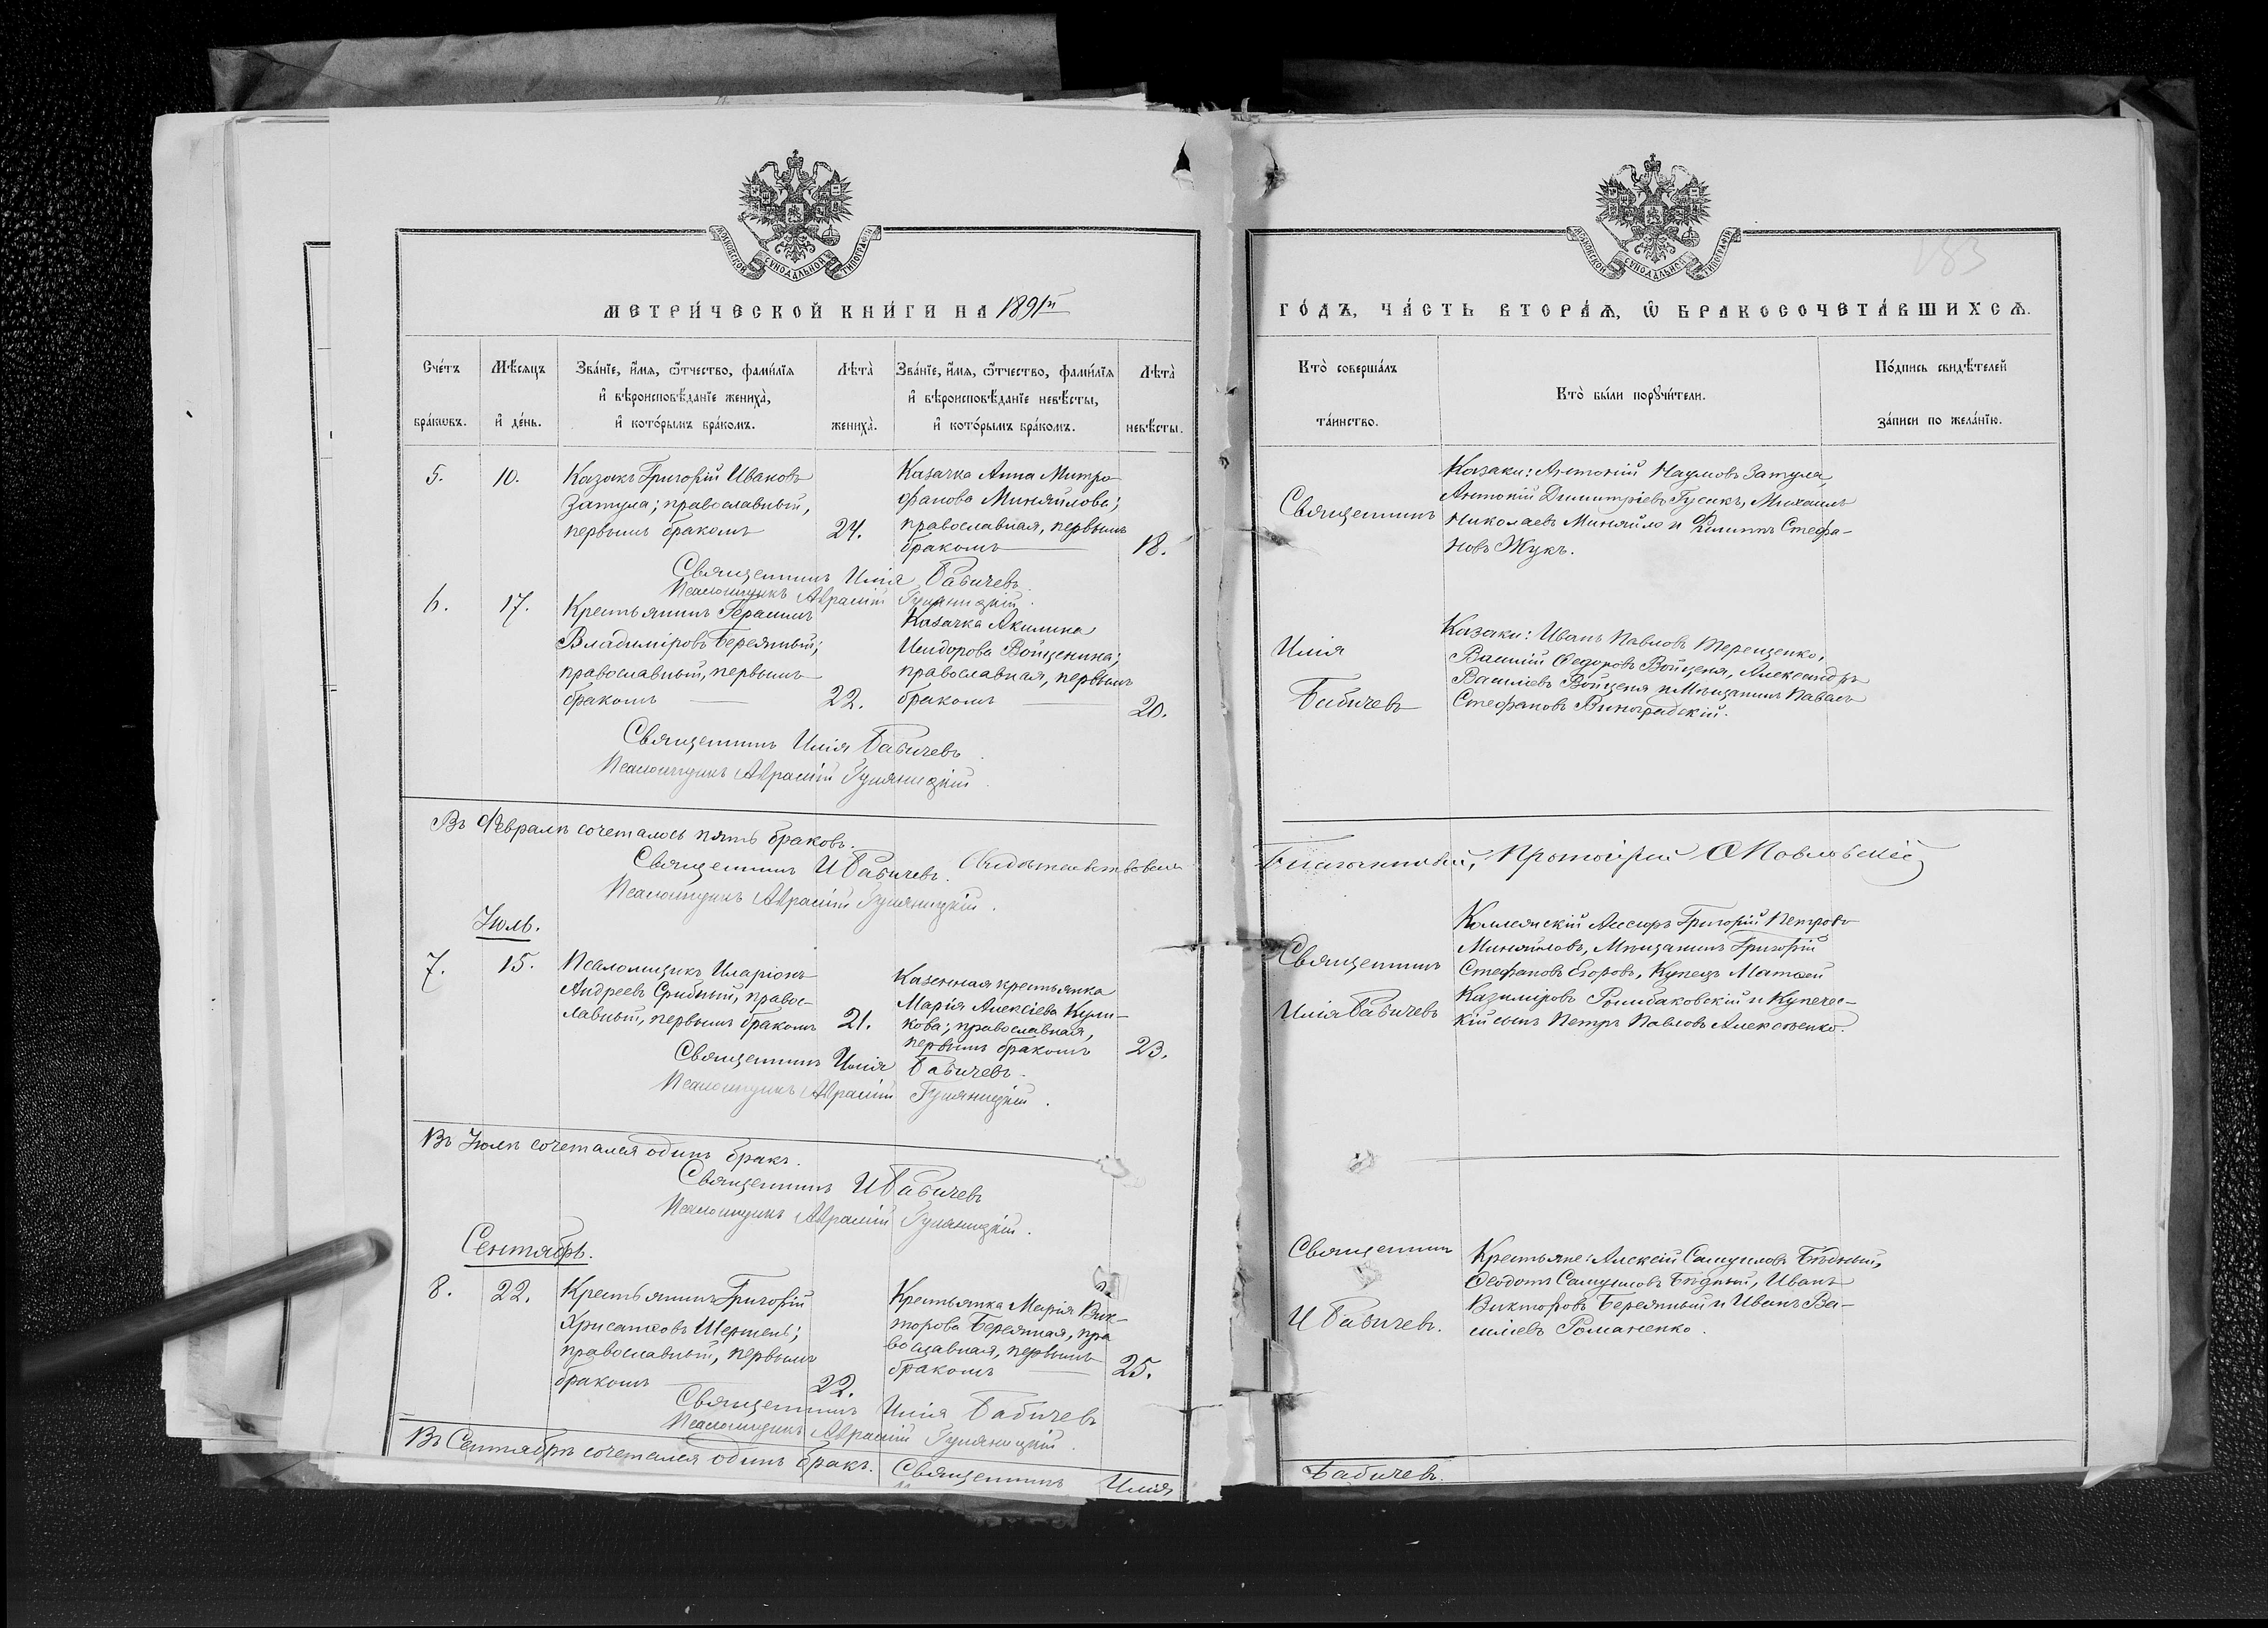 МОСКОВСКОЙ СѴНОДАЛЬНОЙ ТИПОГРАФІИ
МЕТРИ́ЧЕСКОЙ КНИ́ГИ НА 1891й
Сче́тъ бра́кѡвъ.
Мѣ́сяцъ и҆ де́нь.
Зва́нїе, и҆́мѧ, ѻ҆́тчество, фамѝлїѧ
и҆ вѣроисповѣ́данїе жениха̀,
и҆ кото́рымъ бра́комъ.
Лѣта̀ жениха̀.
Зва́нїе, и҆́мѧ, ѻ҆́тчество, фамѝлїѧ
и҆ вѣроисповѣ́данїе невѣ́сты,
и҆ кото́рымъ бра́комъ.
Лѣта̀ невѣ́сты.
5. 10.
Казакъ Григорій Ивановъ
Затула; православный,
первымъ бракомъ 24.
Казачка Анна Митро
фанова Миняйлова;
православная, первымъ
бракомъ 18.
Священникъ Илія Бабичевъ.
Псаломщикъ Аѳрасій Гуляницкій.
6. 17.
Крестьянинъ Герасимъ
Владиміровъ Берѳяный;
православный, первымъ
бракомъ 22.
Казачка Акилина
Исидорова Войценина;
православная, первымъ
бракомъ 20.
Священникъ Илія Бабичевъ.
Псаломщикъ Гуляницкій.
Въ Февралѣ сочеталось пять браковъ.
Священникъ И Бабичевъ. Свидѣтельствовалъ
Псаломщикъ Гуляницкій.
Іюль.
7. 15.
Псаломщикъ Иларіонъ
Андреевъ Срибный, правос-
лавный, первымъ бракомъ 21.
Казенная крестьянка
Марія Алексіева Кули-
кова; православная,
первымъ бракомъ 23.
Священникъ Илія Бабичевъ.
Псаломщикъ Гуляницкій.
Въ Іюлѣ сочетался одинъ бракъ.
Священникъ И Бабичевъ
Псаломщикъ Гуляницкій.
Сентябрь.
8. 22.
Крестьянинъ Григорій
Хрисанѳовъ Шершень;
православный, первымъ
бракомъ 22.
Крестьянка Марія Вик-
торова Береяная, пра
вославная, первымъ
бракомъ 25.
Священникъ Илія Бабичевъ
Псаломщикъ Гуляницкій.
Въ Сентябрѣ сочетался одинъ бракъ. Священникъ Илія
МОСКОВСКОЙ СѴНОДАЛЬНОЙ ТИПОГРАФІИ
183
ГО́ДЪ, ЧА́СТЬ ВТОРА́Ѧ, Ѡ҆ БРАКОСОЧЕТА́ВШИХСѦ.
Кто̀ соверша́лъ та́инство.
Кто̀ бы́ли порꙋчи́тели.
По́дпись свидѣ́телей
за́писи по жела́нїю.
Священникъ
Казаки: Антоній Наумовъ Затула,
Антоній Димитріевъ Гусакъ, Михаилъ
Николаевъ Миняйло и Филиппъ Стефа-
новъ Жукъ.
Илія
Бабичевъ
Казаки: Иванъ Павловъ Терещенко,
Василій Ѳедоровъ Войценя, Александръ
Василіевъ Войценя и Мѣщанинъ Павелъ
Стефановъ Виноградскій.
Благочинный, Протоіерей Павловскій
Священникъ
Илія Бабичевъ
Коллежскій Ассесоръ Григорій Петровъ
Миняйловъ, Мѣщанинъ Григорій
Стефановъ Егоровъ, Купецъ Матѳей
Казиміровъ Рымбаковскій и Купечес-
кій сынъ Петръ Павловъ Алексѣенко.
Священникъ
И Бабичевъ.
Крестьяне: Алексій Самуиловъ Бѣдный,
Ѳеодотъ Самуиловъ Бѣдный, Иванъ
Викторовъ Береяный и Иванъ Ва-
силіевъ Романенко.
Бабичевъ.